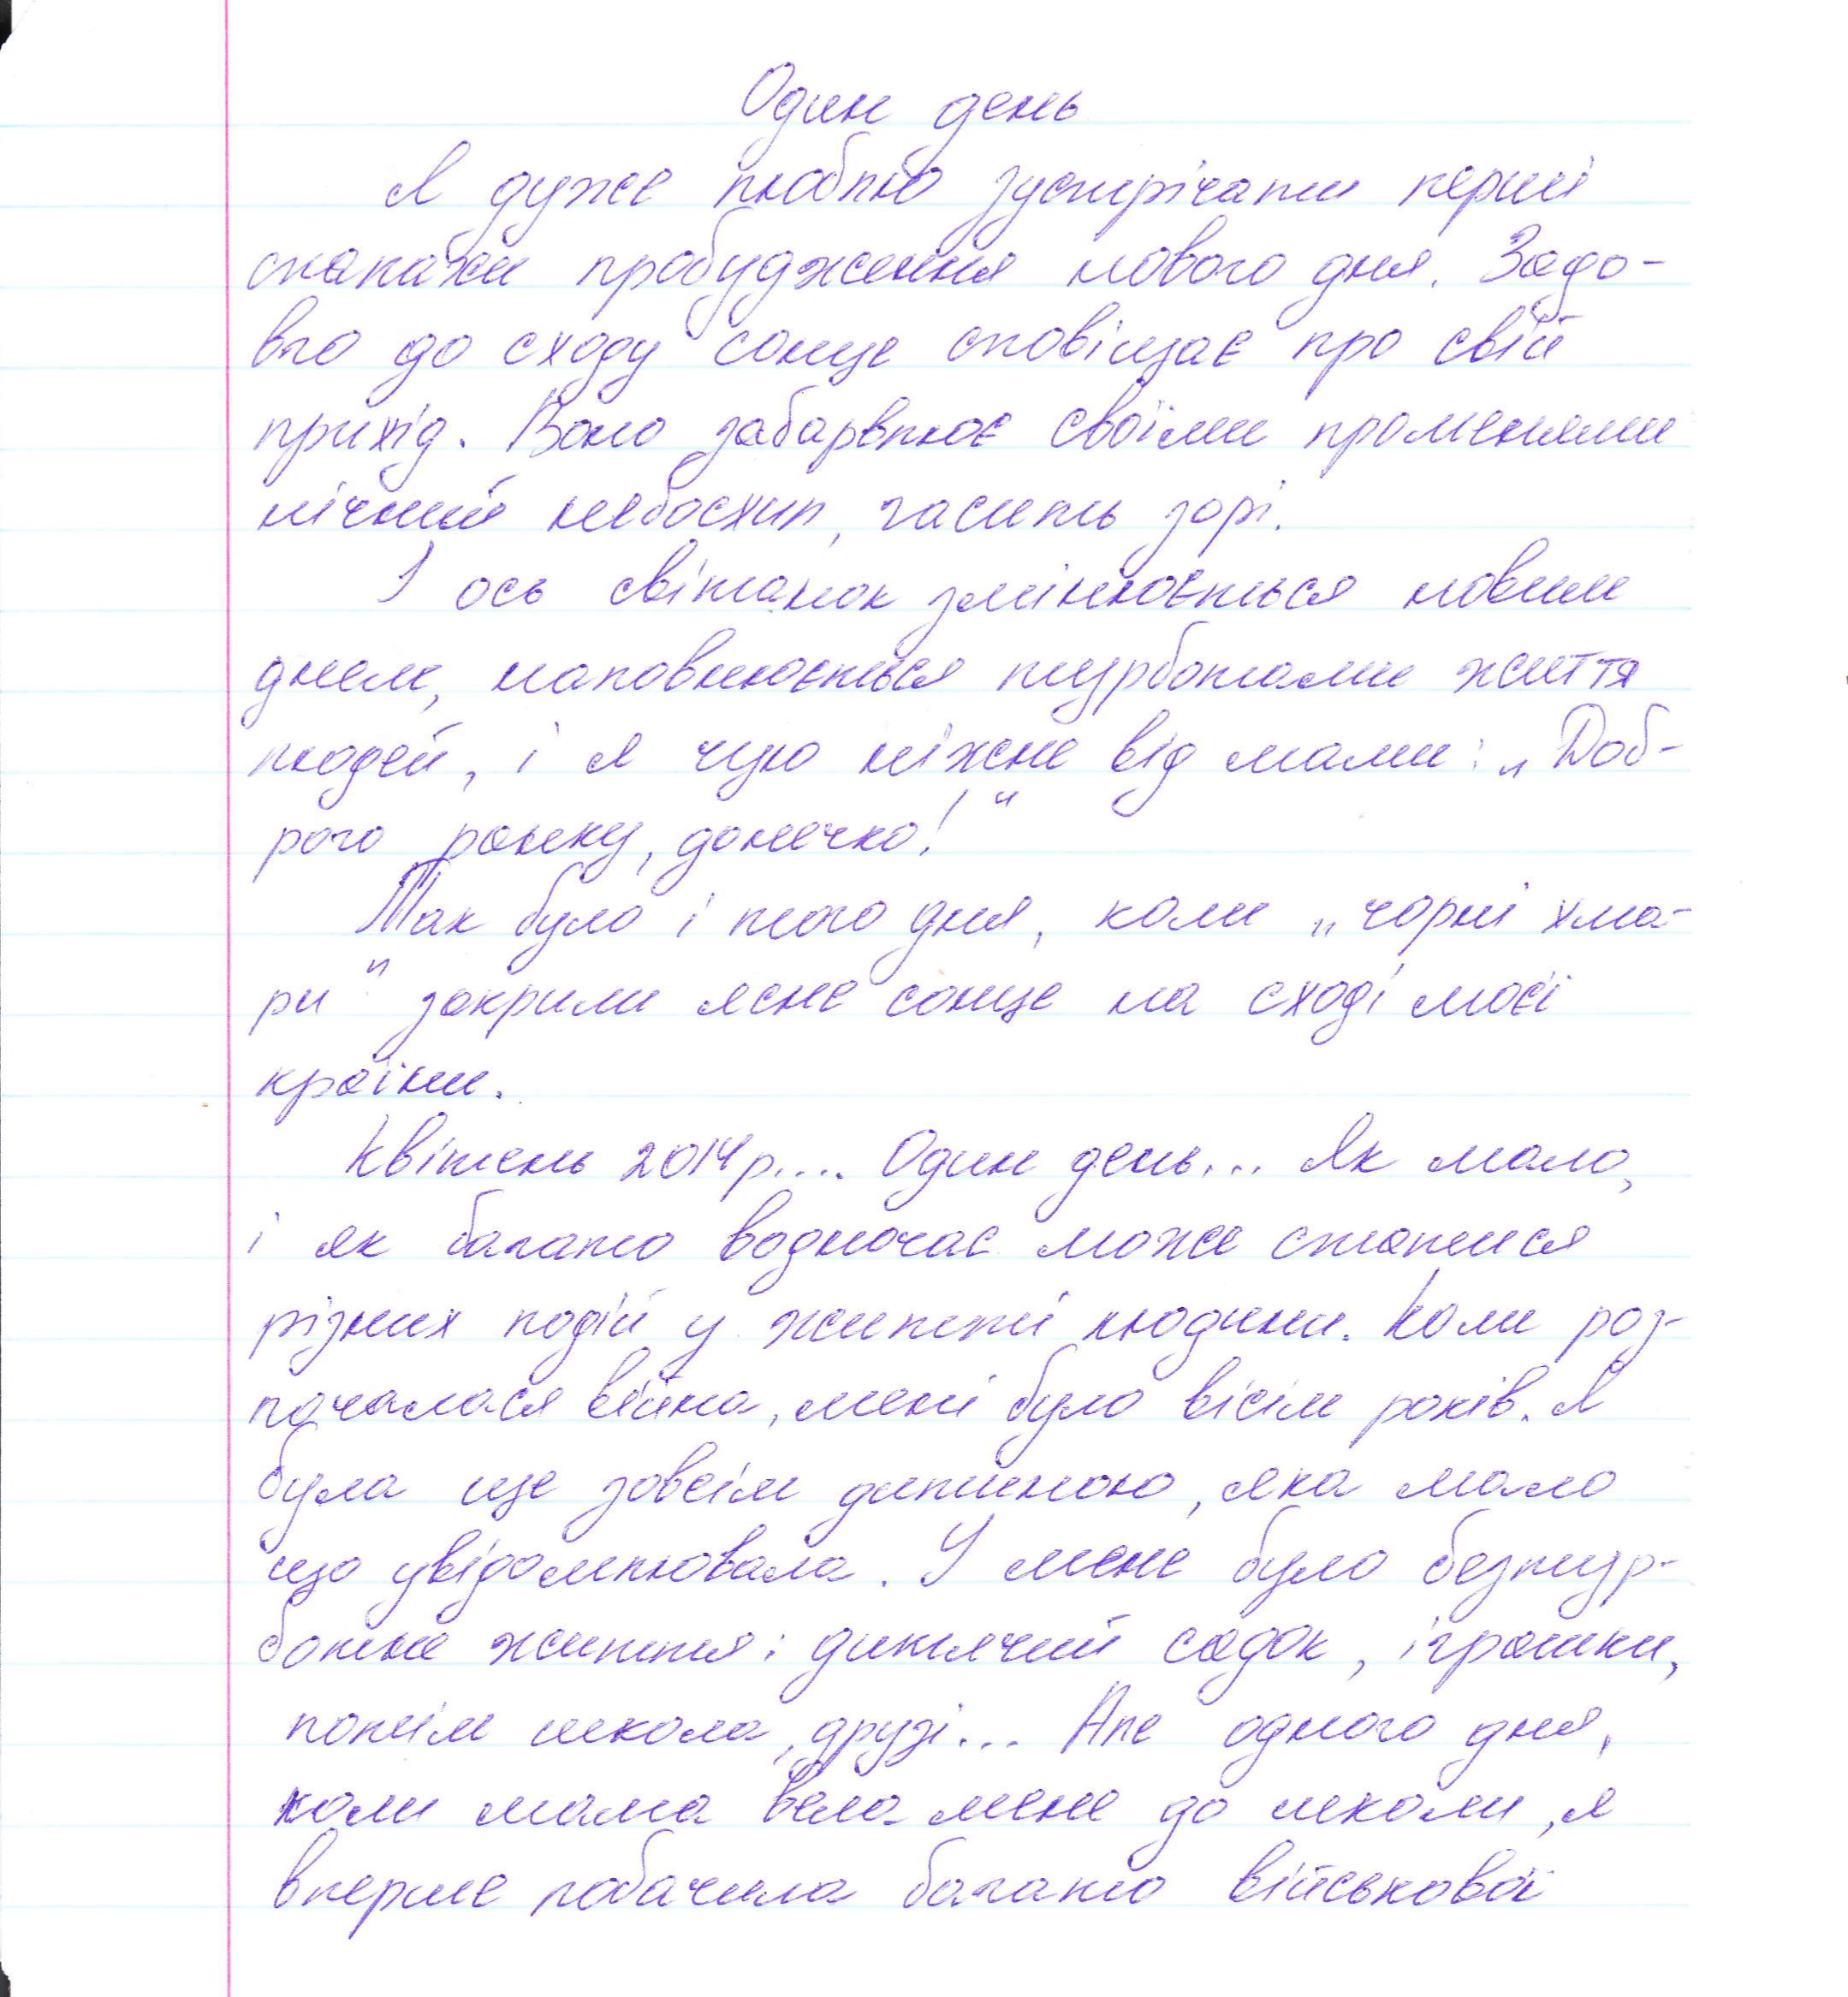 Один день
Я дуже люблю зустрічати перші
спалахи пробудження нового дня. Задо-
вго до сходу сонце сповіщає про свій
прихід. Воно забарвлює своїми променями
нічний небосхил, гасить зорі.
І ось світанок змінюється новим
днем, наповнюється турботами життя
людей, і я чую ніжне від мами: „Доб-
рого ранку, донечко!“
Так було і того дня, коли „чорні хма-
ри“ закрили ясне сонце на сході моєї
країни.
Квітень 2014р.... Один день... Як мало,
і як багато водночас може статися
різних подій у житті людини. Коли роз-
почалася війна, мені було вісім років. Я
була ще зовсім дитиною, яка мало
що усвідомлювала. У мене було безтур-
ботне життя: дитячий садок, іграшки,
потім школа, друзі... Але одного дня,
коли мама вела мене до школи, я
вперше побачила багато військової